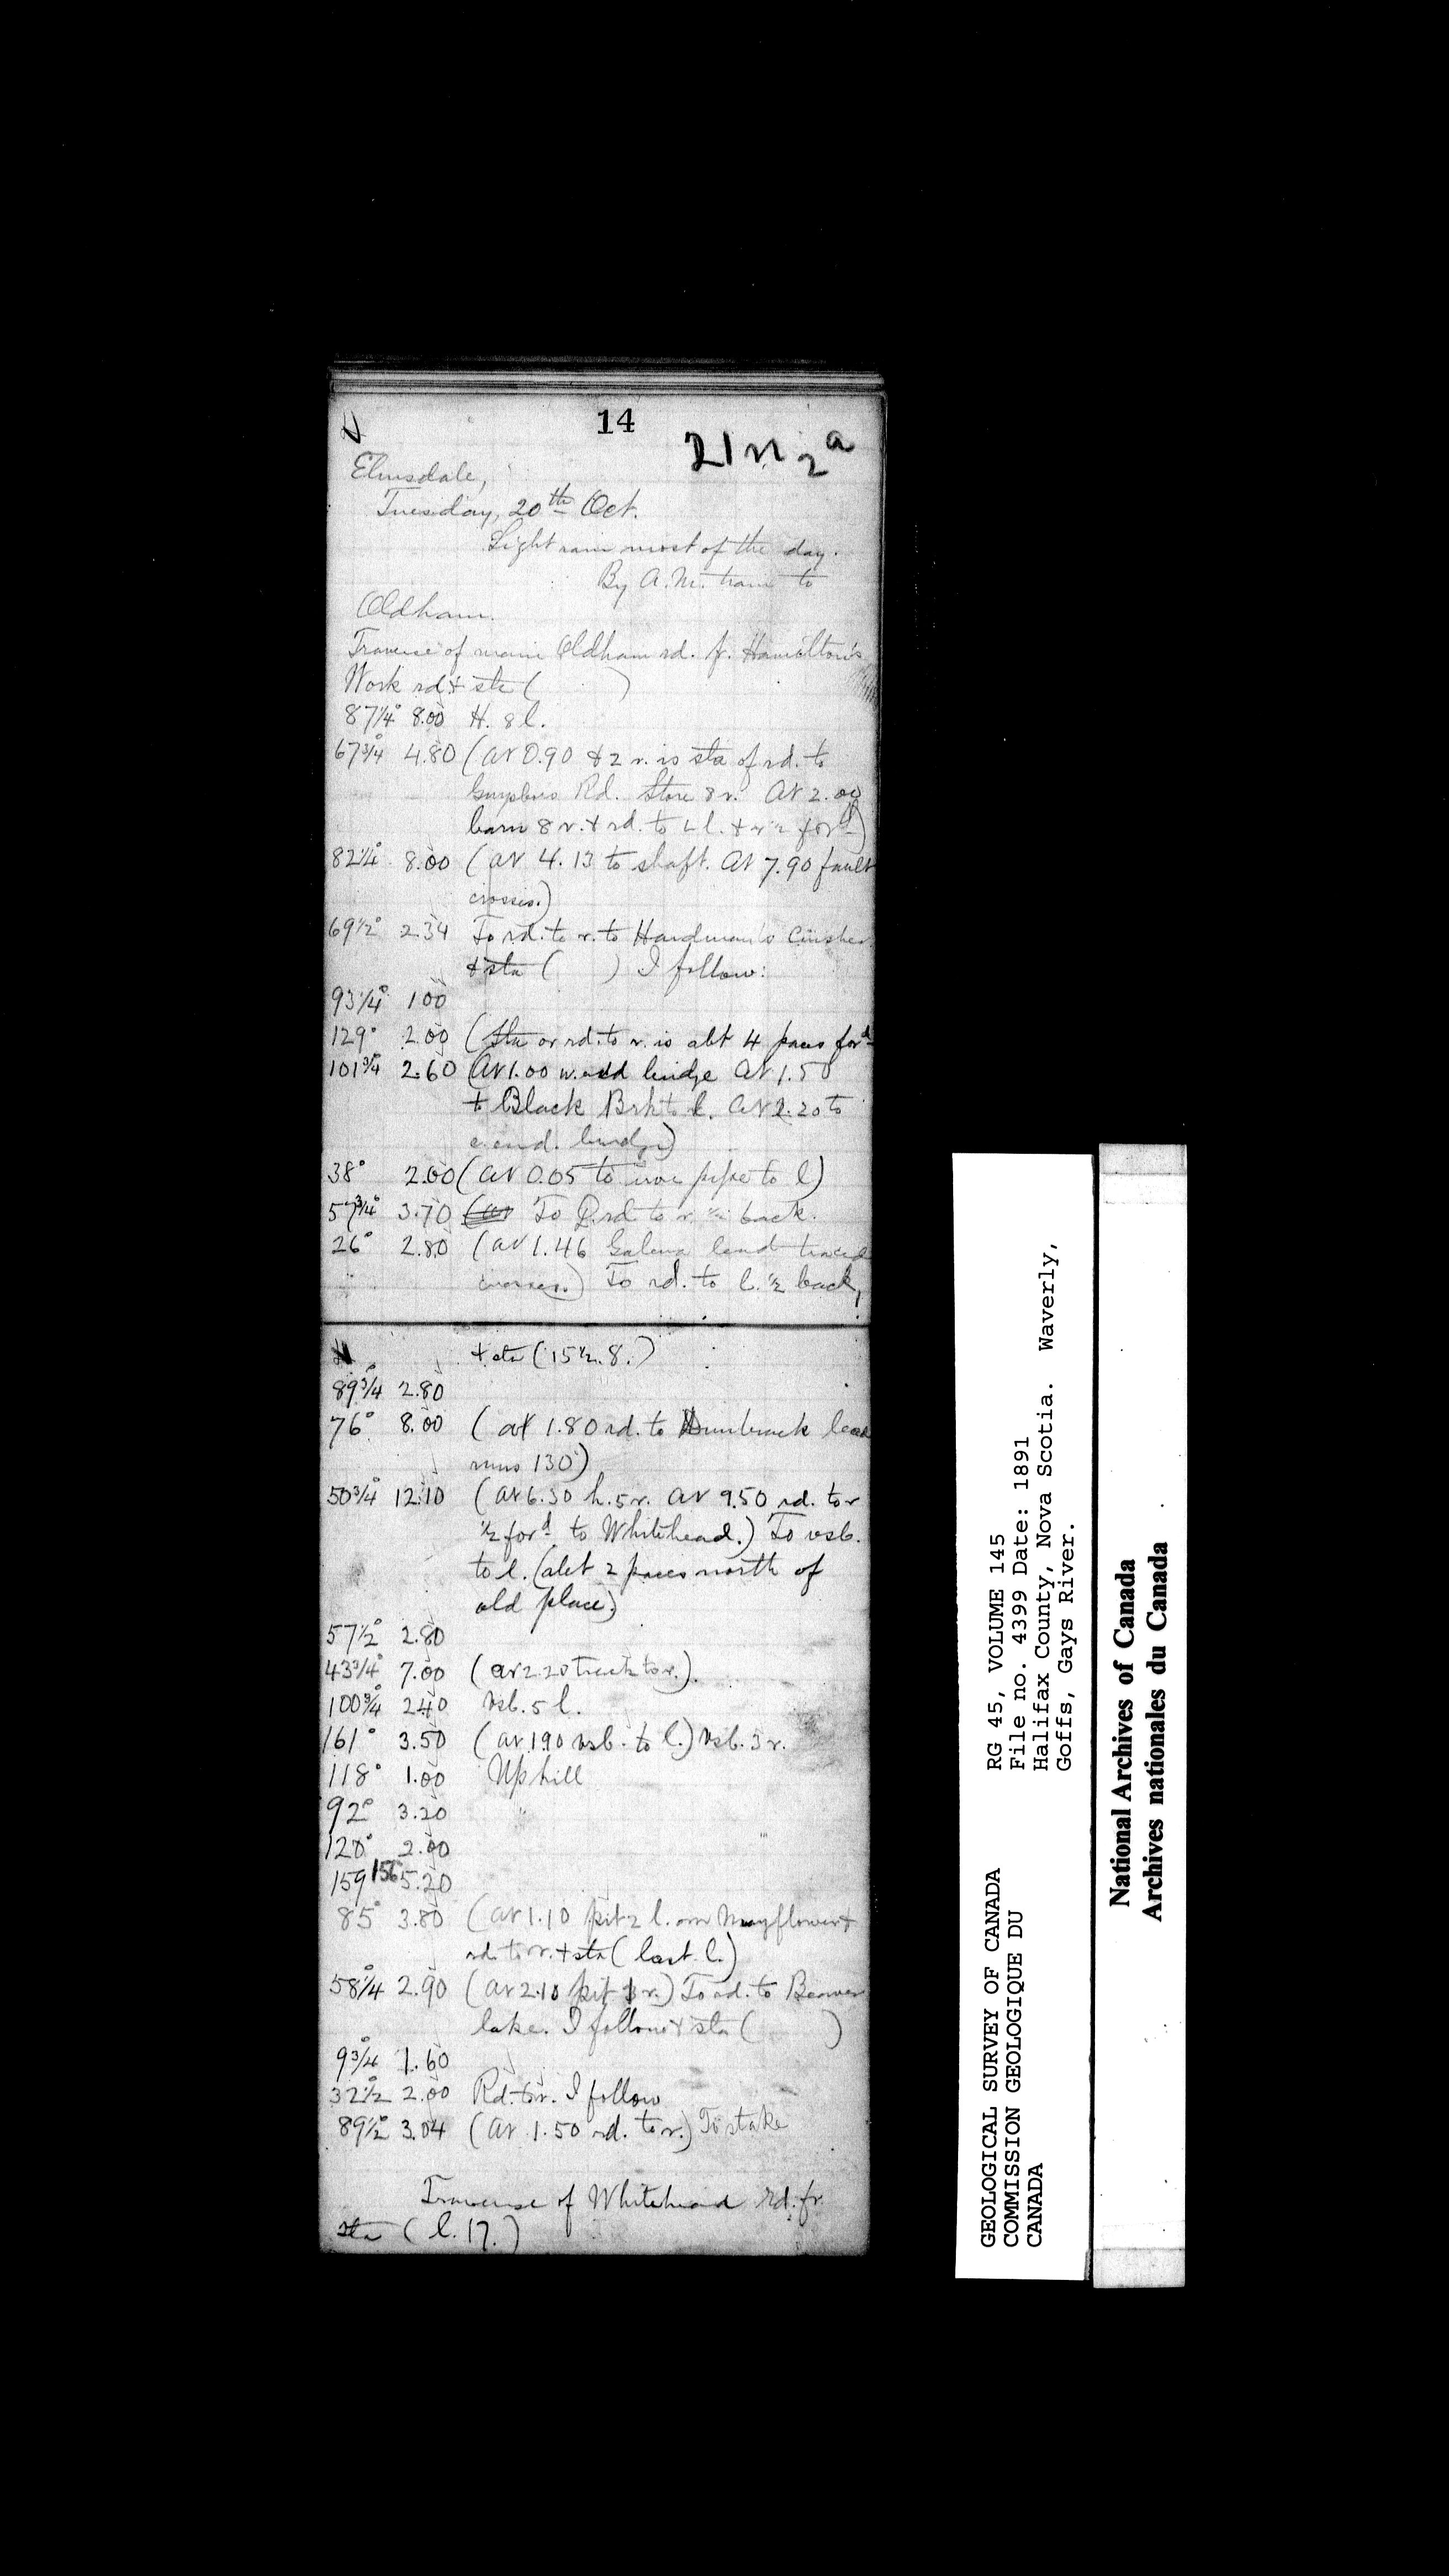 14
21 n 2 a
Elmsdale,
Tuesday, 20th Oct.
Light rain most of the day.
By A.M. train to
Oldham.
Traverse of main Oldham rd. fr. Hamilton's
Work rd + sta ( )
87 1/4° 8.00 H. 8 l.
67 3/4° 4.80 (at 0.90 & 2 r. is sta of rd. to
Rd. Store 8 r. At 2.00
barn 8 r. + rd. to l. + r 1/2 ford)
82 1/4° 8.00 (at 4.13 to shaft. At 7.90 fault
crosses.)
69 1/2° 2.34 To rd. to r. to Hardman's Crusher
+ sta ( ) I follow:
93 1/4° 1.00
129° 2.00 (Sta or rd. to r. is abt 4 paces ford
101 3/4° 2.60 (At 1.00 w. end bridge At 1.50
+ Black Brk to l. At 2.20 to
e. end. bridge)
38° 2.00 (at 0.05 to iron pipe to l)
57 3/4° 3.70 (at To rd to r 1/2 back.
26° 2.80 (at 1.46 Galena lead traced
crosses.) To rd. to l. 1/2 back,
+ sta (15 1/2. 8.)
89 3/4° 2.80
76° 8.00 (at 1.80 rd. to Dunbrack lead
runs 130°)
50 3/4° 12.10 (at 6.30 h. 5 r. At 9.50 rd. to r
1/2 ford to Whitehead.) To vsb.
to l. (abt 2 paces north of
old place.)
57 1/2° 2.80
43 3/4° 7.00 (at 2.20 track to r.)
100 3/4° 2.40 Vsb. 5 l.
161° 3.50 (at 1.90 vsb. to l.) Vsb. 3 r.
118° 1.00 Up hill
92° 3.20 "
120° 2.00 "
159 156 5.20
85° 3.80 (at 1.10 pit 2 l. on Mayflower +
rd. to r. + sta (last l.)
58 1/4° 2.90 (at 2.10 pit 1 r.) To rd. to Beaver
lake. I follow + sta ( )
9 3/4° 1.60
32 1/2° 2.00 Rd. to r. I follow
89 1/2° 3.04 (at 1.50 rd. to r.) To stake
Traverse of Whitehead rd. fr.
sta (l. 17.)
GEOLOGICAL SURVEY OF CANADA
COMMISSION GEOLOGIQUE DU
CANADA
RG 45, VOLUME 145
File no. 4399 Date: 1891
Halifax County, Nova Scotia. Waverly,
Goffs, Gays River.
National Archives of Canada
Archives nationales du Canada